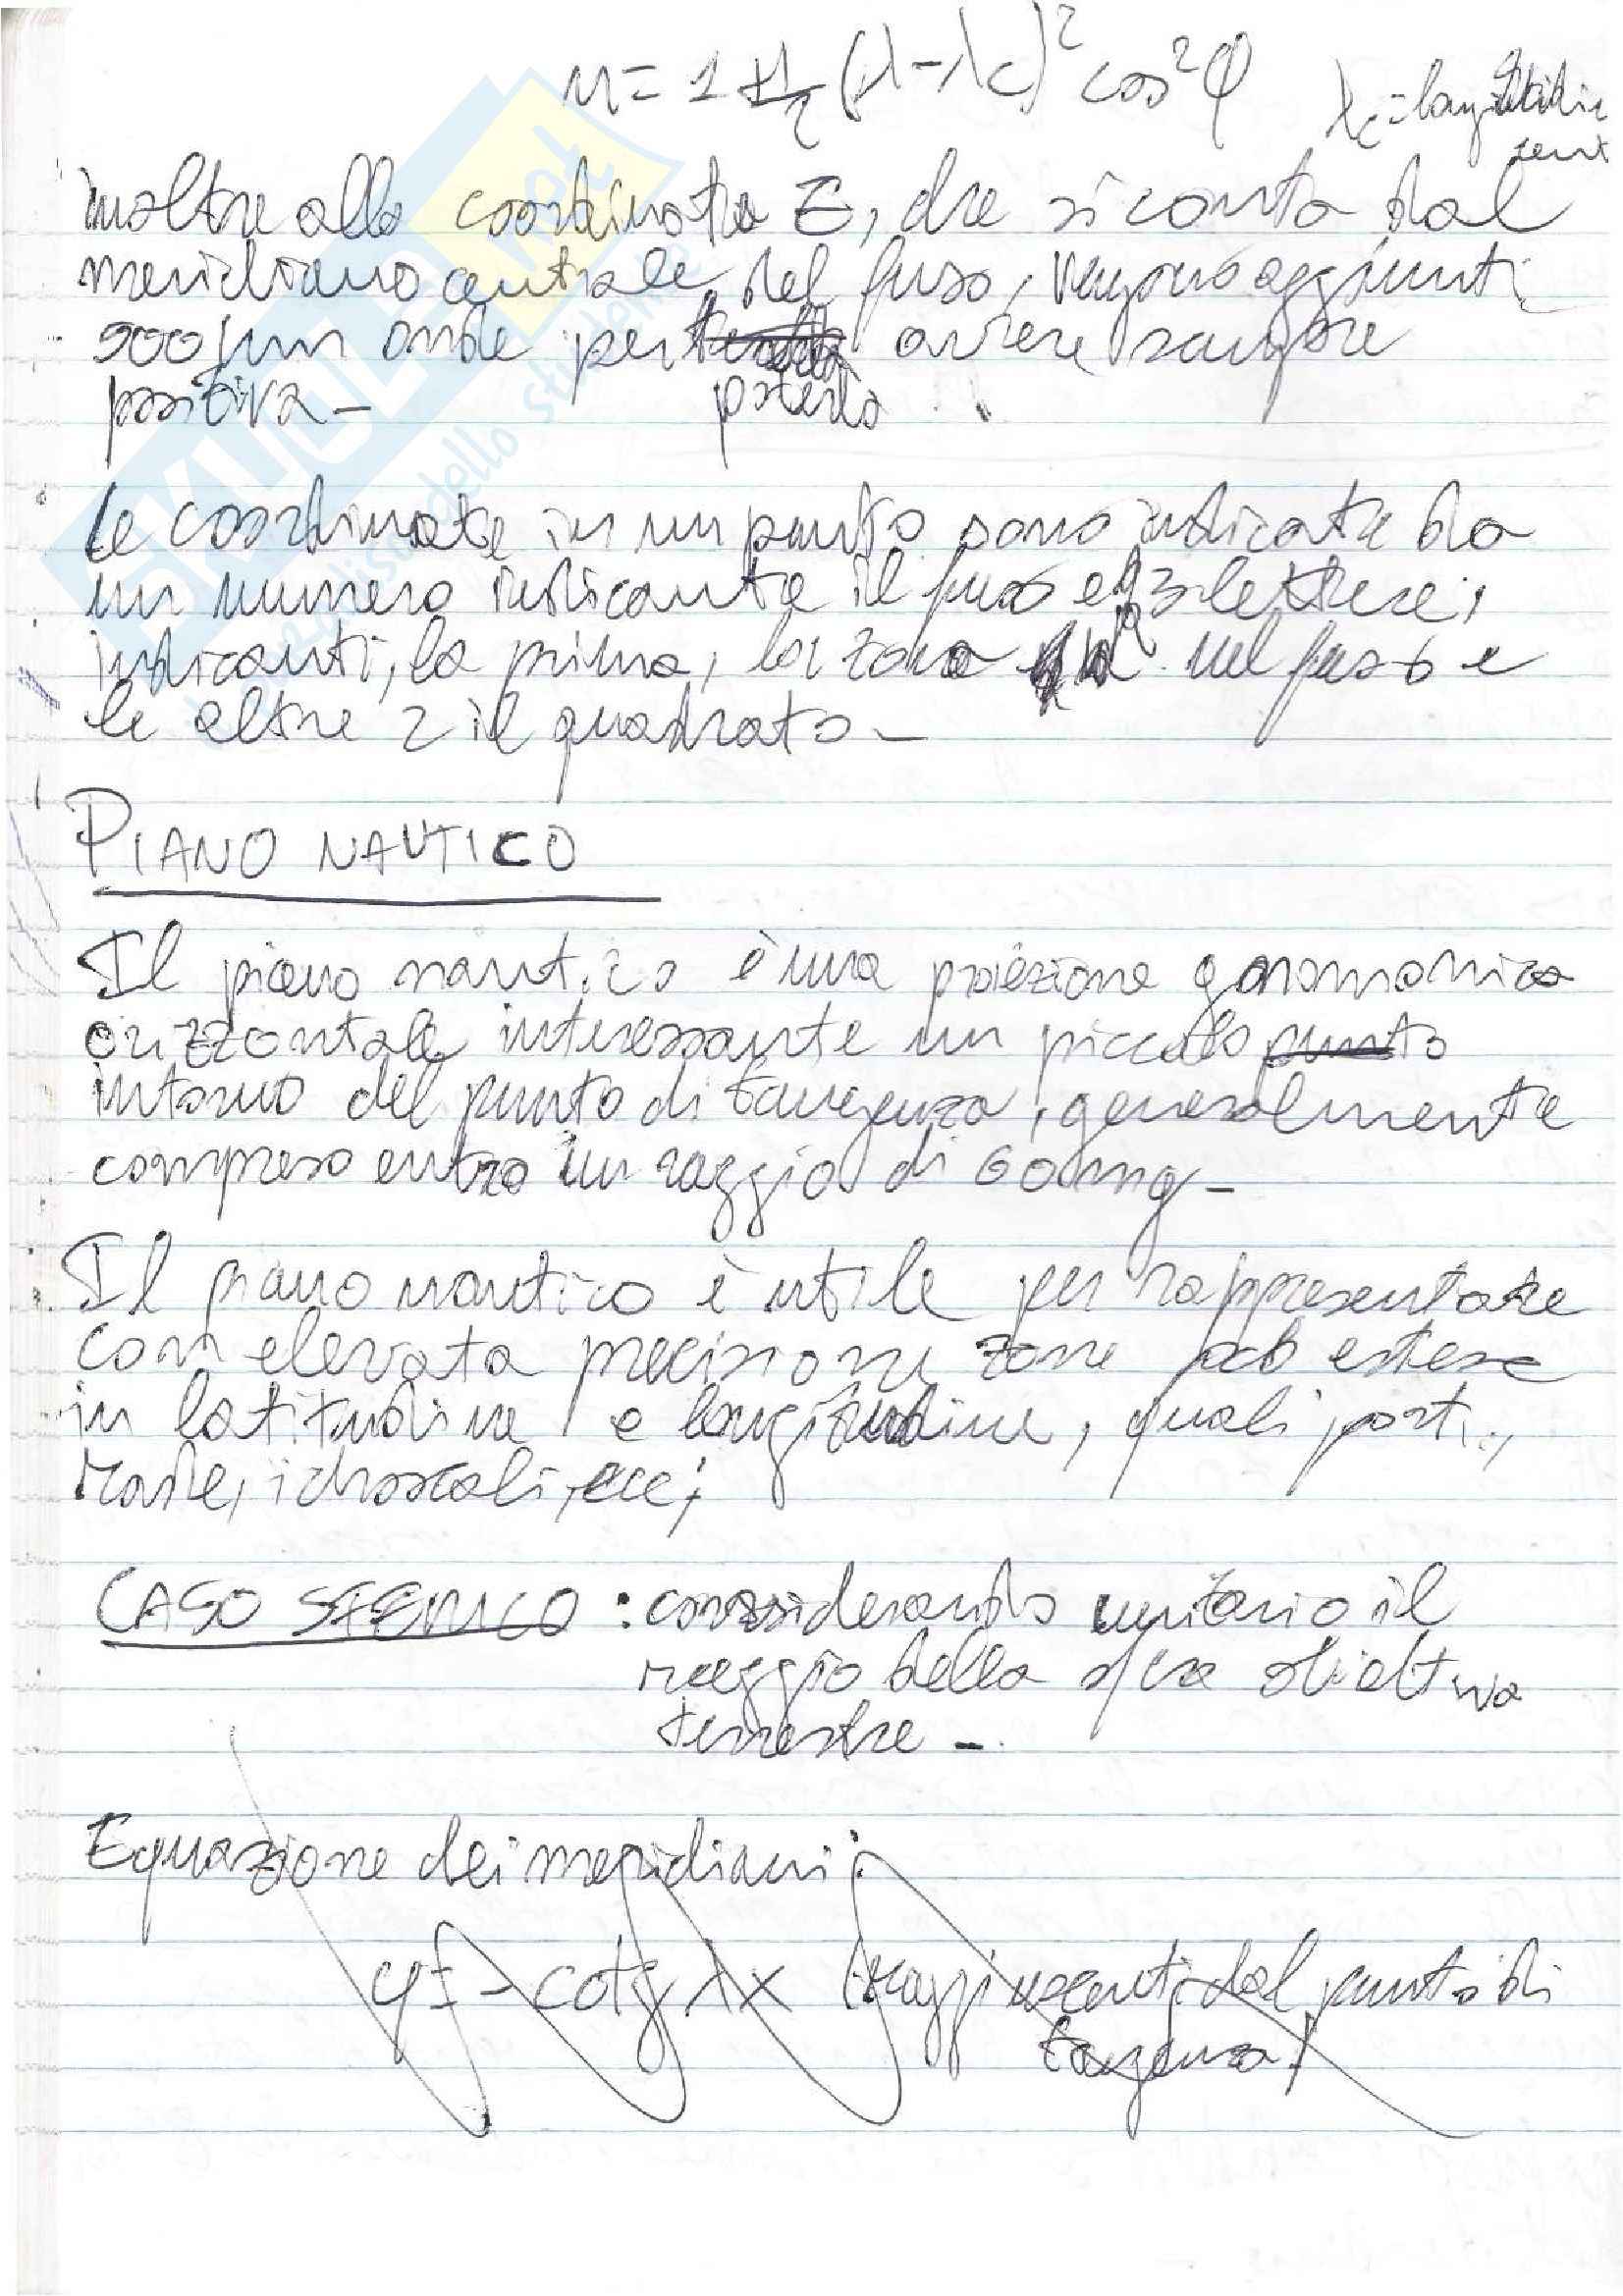 n = 1 + 1/2 (λ-λc)² cos²φ λc = longitudine cent
inoltre alla coordinata E, che si conta dal
meridiano centrale del fuso, vengono aggiunti
500 km onde per averse sempre
positiva - poterla
le coordinate in un punto sono indicate da
un numero indicante il fuso e 3 lettere,
indicanti, la prima, la zona nel fuso e
le altre 2 il quadrato -
PIANO NAUTICO
Il piano nautico è una proiezione gnomonica
orizzontale interessante un piccolo punto
intorno del punto di tangenza, generalmente
compreso entro un raggio di 60 mg -
Il piano nautico è utile per rappresentare
con elevata precisione zone poco estese
in latitudine e longitudine, quali porti,
rade, idroscali, ecc;
CASO SFERICO : considerando unitario il
raggio della sfera
terrestre -
Equazione dei meridiani:
y = - cotg λ x (raggi uscenti dal punto di
tangenza)
SKUOLA.net